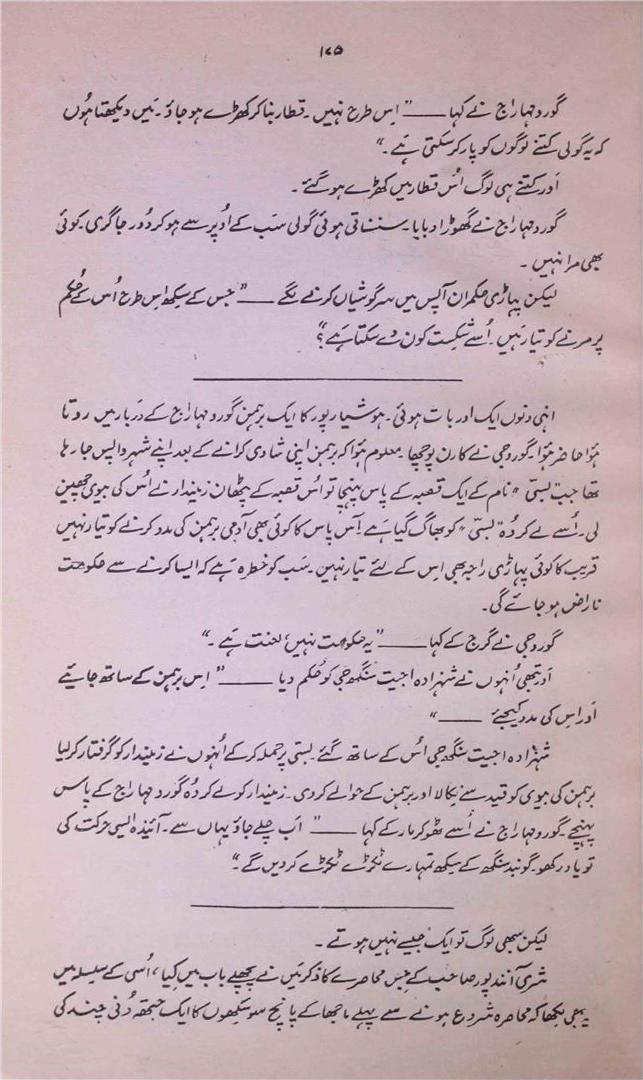 ۱۷۵
گورو مہاراج نے کہا ــــــ "اِس طرح نہیں۔ قطار بنا کر کھڑے ہو جاؤ۔ مَیں دیکھتا ہُوں
کہ یہ گولی کتنے لوگوں کو پار کر سکتی ہَے۔"
اَور کتنے ہی لوگ اُس قطار میں کھڑے ہو گئے۔
گورو مہاراج نے گھوڑا دبایا۔ سنسناتی ہوئی گولی سَب کے اُوپر سے ہو کر دُور جا گری۔ کوئی
بھی مرا نہیں۔
لیکن پہاڑی حکمران آپس میں سرگوشیاں کرنے لگے ــــــ "جس کے سِکھ اِس طرح اُس کے حُکم
پر مرنے کو تیار ہَیں۔ اُسے شکست کون دے سکتا ہَے؟"
انہی دنوں ایک اور بات ہوئی۔ ہوشیارپور کا ایک برہمن گورو مہاراج کے دربار میں روتا
ہؤا حاضر ہؤا۔ گورو جی نے کارن پوچھا۔ معلوم ہؤا کہ برہمن اپنی شادی کرانے کے بعد اپنے شہر واپس جا رہا
تھا جب "بستی" نام کے ایک قصبہ کے پاس پہنچا تو اُس قصبہ کے پٹھان زمیندار نے اُس کی بیوی چھین
لی۔ اُسے لے کر وُہ "بستی" کو بھاگ گیا ہَے۔ آس پاس کا کوئی بھی آدمی برہمن کی مدد کرنے کو تیار نہیں
قریب کا کوئی پہاڑی راجہ بھی اِس کے لئے تیار نہیں۔ سَب کو خطرہ ہَے کہ ایسا کرنے سے حکومت
ناراض ہو جائے گی۔
گورو جی نے گرج کے کہا ــــــ "یہ حکومت نہیں، لعنت ہَے۔"
اَور تبھی اُنہوں نے شہزادہ اجیت سنگھ جی کو حُکم دیا ــــــ "اِس برہمن کے ساتھ جائیے
اَور اس کی مدد کیجئے ــــــ"
شہزادہ اجیت سنگھ جی اُس کے ساتھ گئے۔ بستی پر حملہ کر کے اُنہوں نے زمیندار کو گرفتار کر لیا
برہمن کی بیوی کو قید سے نِکالا اور برہمن کے حوالے کر دی۔ زمیندار کو لے کر وُہ گورو مہاراج کے پاس
پہنچے۔ گورو مہاراج نے اُسے ٹھوکر مار کے کہا ــــــ "اَب چلے جاؤ یہاں سے۔ آئندہ ایسی حرکت کی
تو یاد رکھو۔ گوبند سنگھ کے سِکھ تمہارے ٹکڑے ٹکڑے کر دیں گے۔"
لیکن سبھی لوگ تو ایک جیسے نہیں ہوتے۔
شری آنند پور صاحب کے جِس محاصرے کا ذکر مَیں نے پچھلے باب میں کِیا، اُسی کے سِلسِلہ میں
یہ بھی لِکھا کہ محاصرہ شروع ہونے سے پہلے ماجھا کے پانچ سو سِکھوں کا ایک جتھہ دُنی چند کی